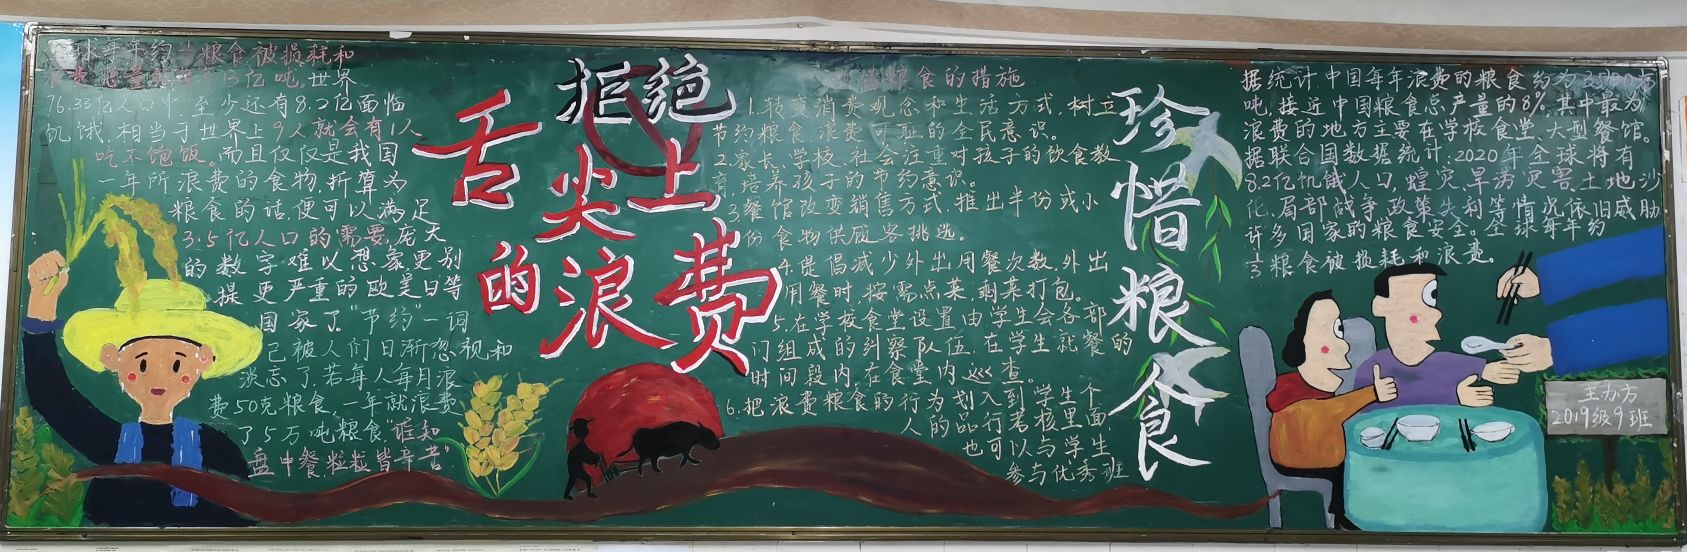 全球每年约⅓粮食被损耗和
浪费,总量每年13亿吨。世界
76.33亿人口中,至少还有8.2亿面临
饥饿,相当于世界上9人就会有1人
吃不饱饭。而且仅仅是我国
一年所浪费的食物,折算为
粮食的话,便可以满足
3.5亿人口的需要,庞大
的数字难以想象更别
提更严重的欧美日等
国家了。"节约"一词
已被人们日渐忽视和
淡忘了,若每人每月浪
费50克粮食,一年就浪费
了5万吨粮食"谁知
盘中餐,粒粒皆辛苦"
拒绝
舌尖上
的浪费
粮食的措施
1.转变消费观念和生活方式,树立
节约粮食,浪费可耻的全民意识。
2.家长、学校、社会注重对孩子的饮食教
育,培养孩子的节约意识。
3.餐馆改变销售方式,推出半份或小
份食物供顾客挑选。
4.提倡减少外出用餐次数,外出
用餐时,按需点菜,剩菜打包。
5.在学校食堂设置由学生会各部
门组成的纠察队伍,在学生就餐的
时间段内,在食堂内巡查。
6.把浪费粮食的行为划入到学生个
人的品行考核里面,
也可以与学生
参与优秀班
珍惜粮食
据统计中国每年浪费的粮食约为3500万
吨,接近中国粮食总产量的8%,其中最为
浪费的地方主要在学校食堂、大型餐馆。
据联合国数据统计:2020年全球将有
8.2亿饥饿人口,蝗灾、旱涝灾害、土地沙
化、局部战争,政策失利等情况依旧威胁
许多国家的粮食安全。全球每年约
⅓粮食被损耗和浪费。
主办方
2019级9班